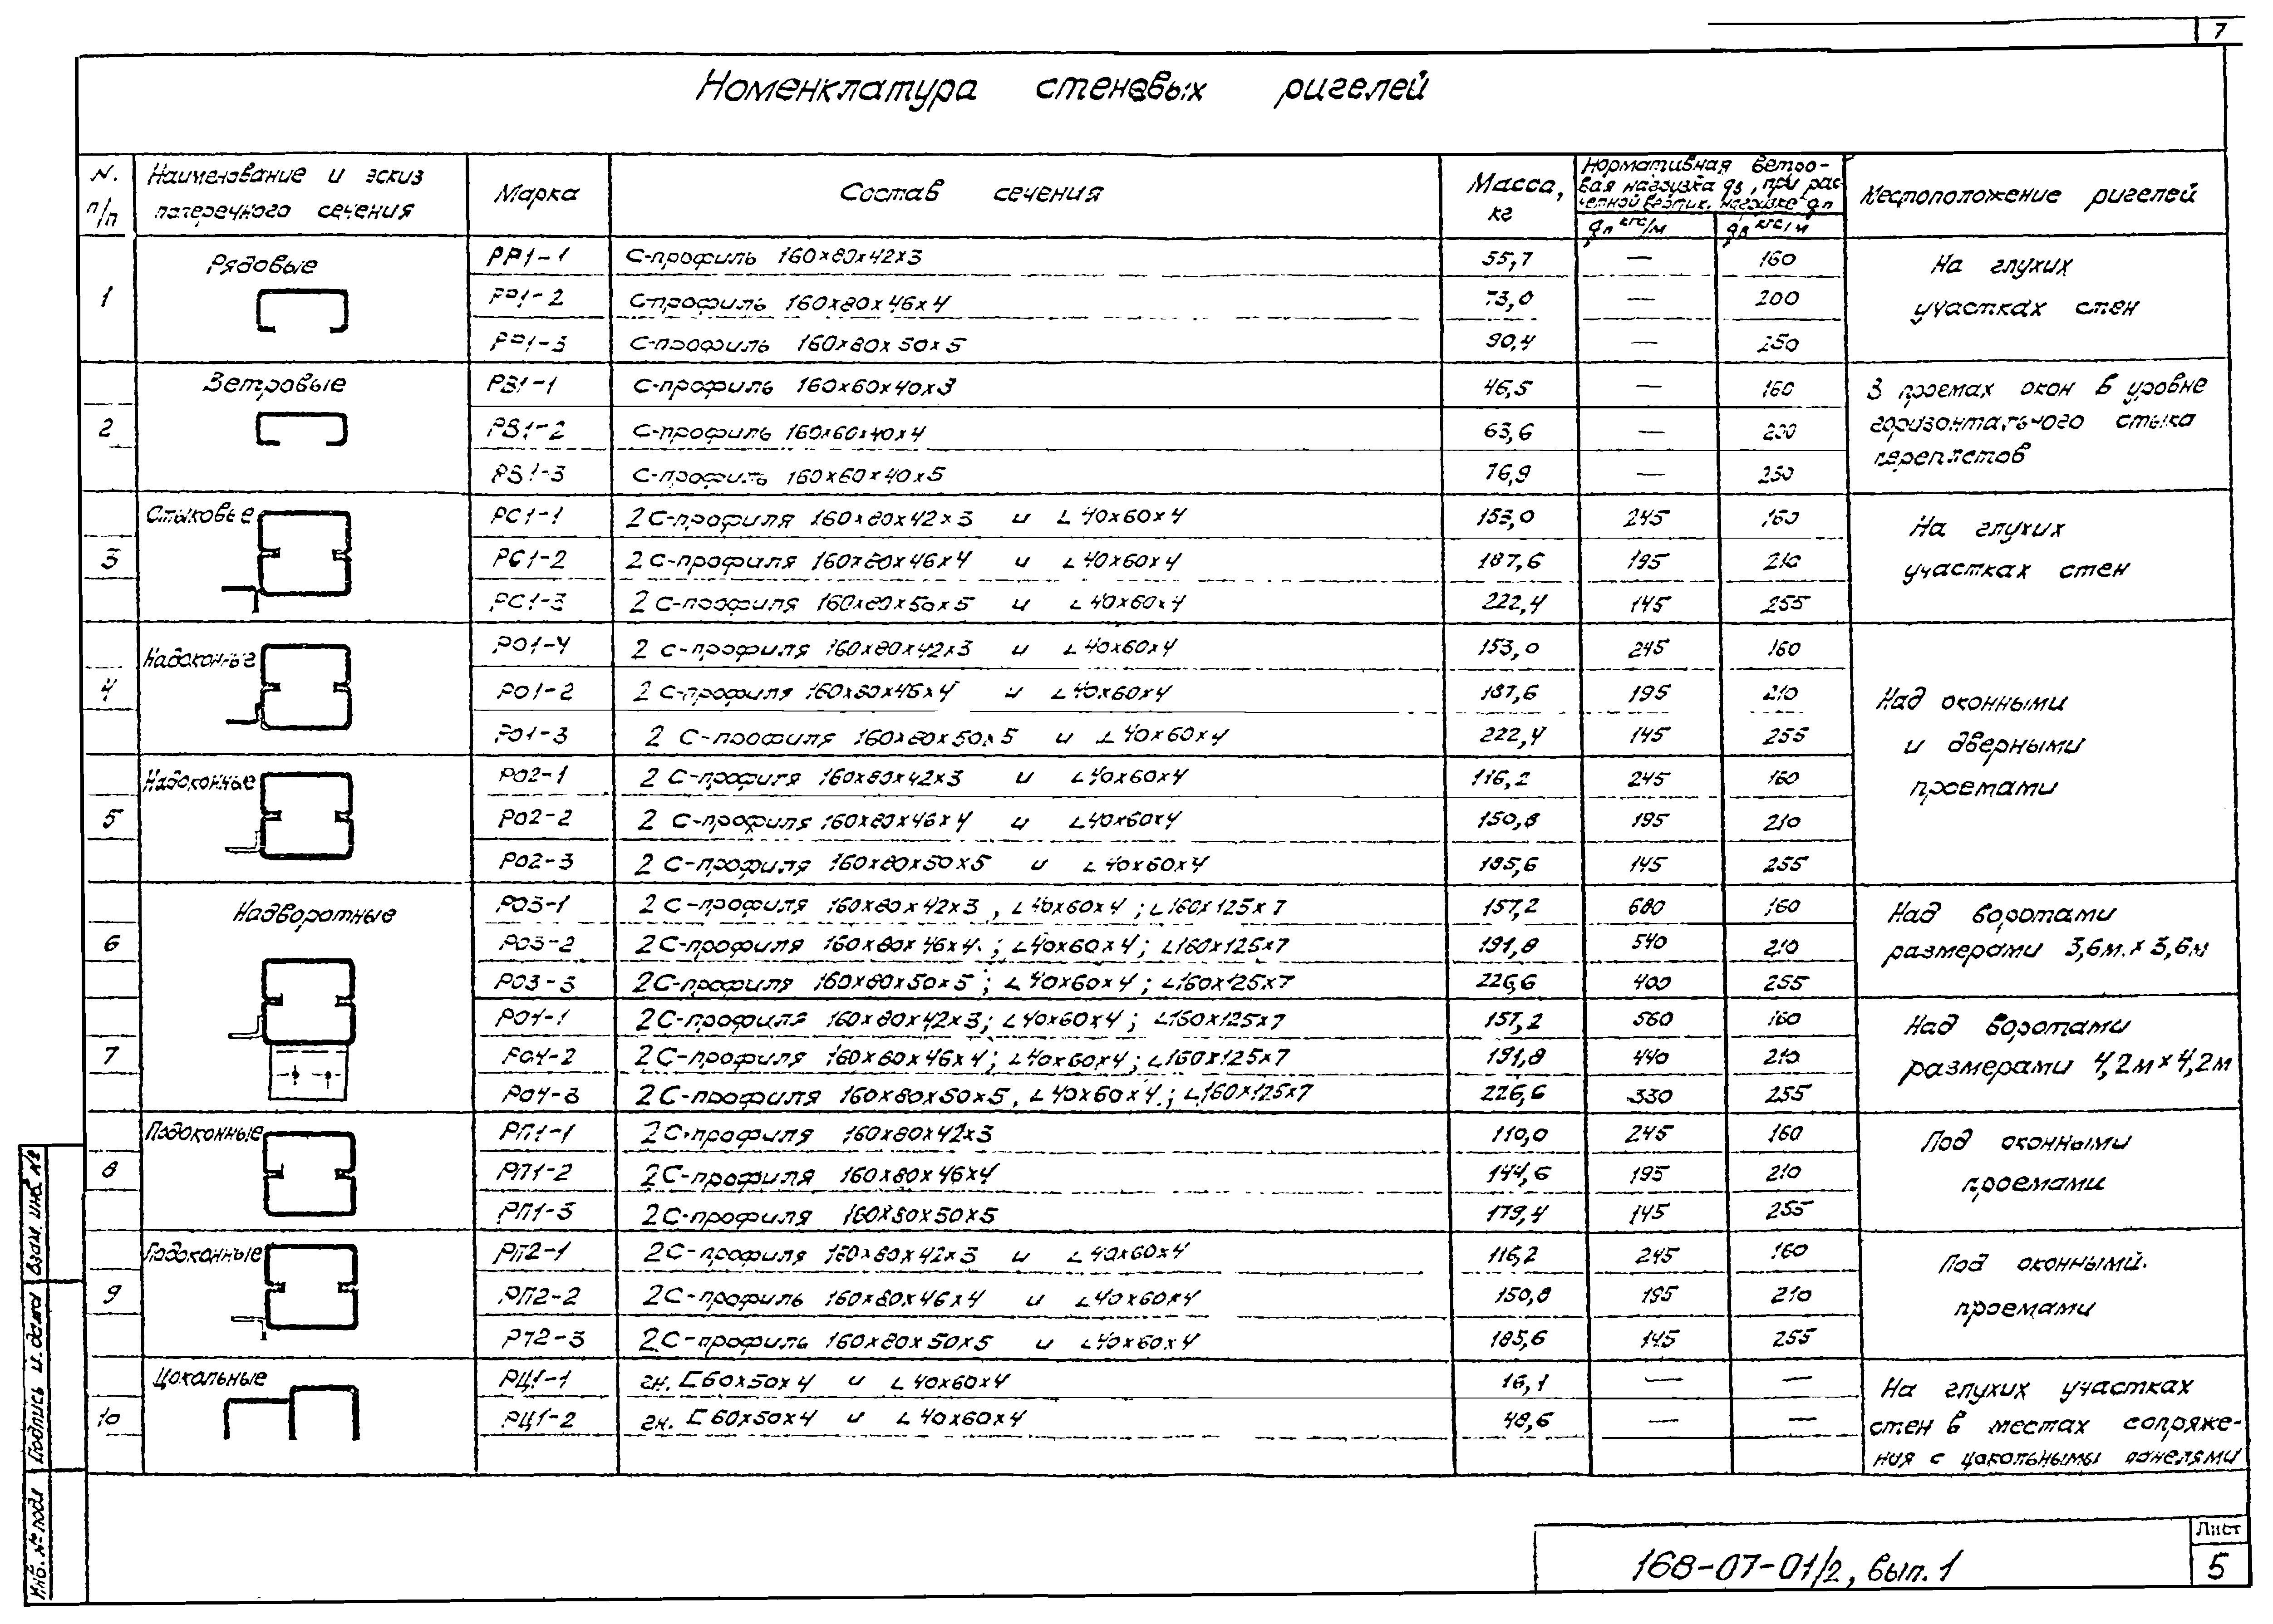 7
Номенклатура стеновых ригелей
N. п/п
Наименование и эскиз поперечного сечения
Марка
Состав сечения
Масса, кг
Нормативная ветровая нагрузка qв, при расчетной вертик. нагрузке qп
qп кгс/м
qв кгс/м
Местоположение ригелей
1
Рядовые
РР1-1 С-профиль 160×80×42×3 55,7 — 160
РР1-2 С-профиль 160×80×46×4 73,0 — 200
РР1-3 С-профиль 160×80×50×5 90,4 — 250
На глухих
участках стен
2
Ветровые
РВ1-1 С-профиль 160×60×40×3 46,5 — 160
РВ1-2 С-профиль 160×60×40×4 63,6 — 200
РВ1-3 С-профиль 160×60×40×5 76,9 — 250
В проемах окон в уровне
горизонтального стыка
переплетов
3
Стыковые
РС1-1 2 С-профиля 160×80×42×3 и ∟40×60×4 153,0 245 160
РС1-2 2 С-профиля 160×80×46×4 и ∟40×60×4 187,6 195 210
РС1-3 2 С-профиля 160×80×50×5 и ∟40×60×4 222,4 145 255
На глухих
участках стен
4
Надоконные
РО1-4 2 С-профиля 160×80×42×3 и ∟40×60×4 153,0 245 160
РО1-2 2 С-профиля 160×80×46×4 и ∟40×60×4 187,6 195 210
РО1-3 2 С-профиля 160×80×50×5 и ∟40×60×4 222,4 145 255
Над оконными
и дверными
проемами
5
Надоконные
РО2-1 2 С-профиля 160×80×42×3 и ∟40×60×4 116,2 245 160
РО2-2 2 С-профиля 160×80×46×4 и ∟40×60×4 150,8 195 210
РО2-3 2 С-профиля 160×80×50×5 и ∟40×60×4 185,6 145 255
6
Надворотные
РО3-1 2 С-профиля 160×80×42×3, ∟40×60×4; ∟160×125×7 157,2 680 160
РО3-2 2 С-профиля 160×80×46×4; ∟40×60×4; ∟160×125×7 191,8 540 210
РО3-3 2 С-профиля 160×80×50×5; ∟40×60×4; ∟160×125×7 226,6 400 255
Над воротами
размерами 3,6м.×3,6м
7
РО4-1 2 С-профиля 160×80×42×3; ∟40×60×4; ∟160×125×7 157,2 560 160
РО4-2 2 С-профиля 160×80×46×4; ∟40×60×4; ∟160×125×7 191,8 440 210
РО4-3 2 С-профиля 160×80×50×5, ∟40×60×4; ∟160×125×7 226,6 330 255
Над воротами
размерами 4,2м×4,2м
8
Подоконные
РП1-1 2 С-профиля 160×80×42×3 110,0 245 160
РП1-2 2 С-профиля 160×80×46×4 144,6 195 210
РП1-3 2 С-профиля 160×80×50×5 179,4 145 255
Под оконными
проемами
9
Подоконные
РП2-1 2 С-профиля 160×80×42×3 и ∟40×60×4 116,2 245 160
РП2-2 2 С-профиль 160×80×46×4 и ∟40×60×4 150,8 195 210
РП2-3 2 С-профиль 160×80×50×5 и ∟40×60×4 185,6 145 255
Под оконными.
проемами
10
Цокольные
РЦ1-1 гн. [60×50×4 и ∟40×60×4 16,1 — —
РЦ1-2 гн. [60×50×4 и ∟40×60×4 48,6 — —
На глухих участках
стен в местах сопряже-
ния с цокольными панелями
Инв. № подл
Подпись и дата
Взам. инв №
168-07-01/2, вып. 1
Лист
5